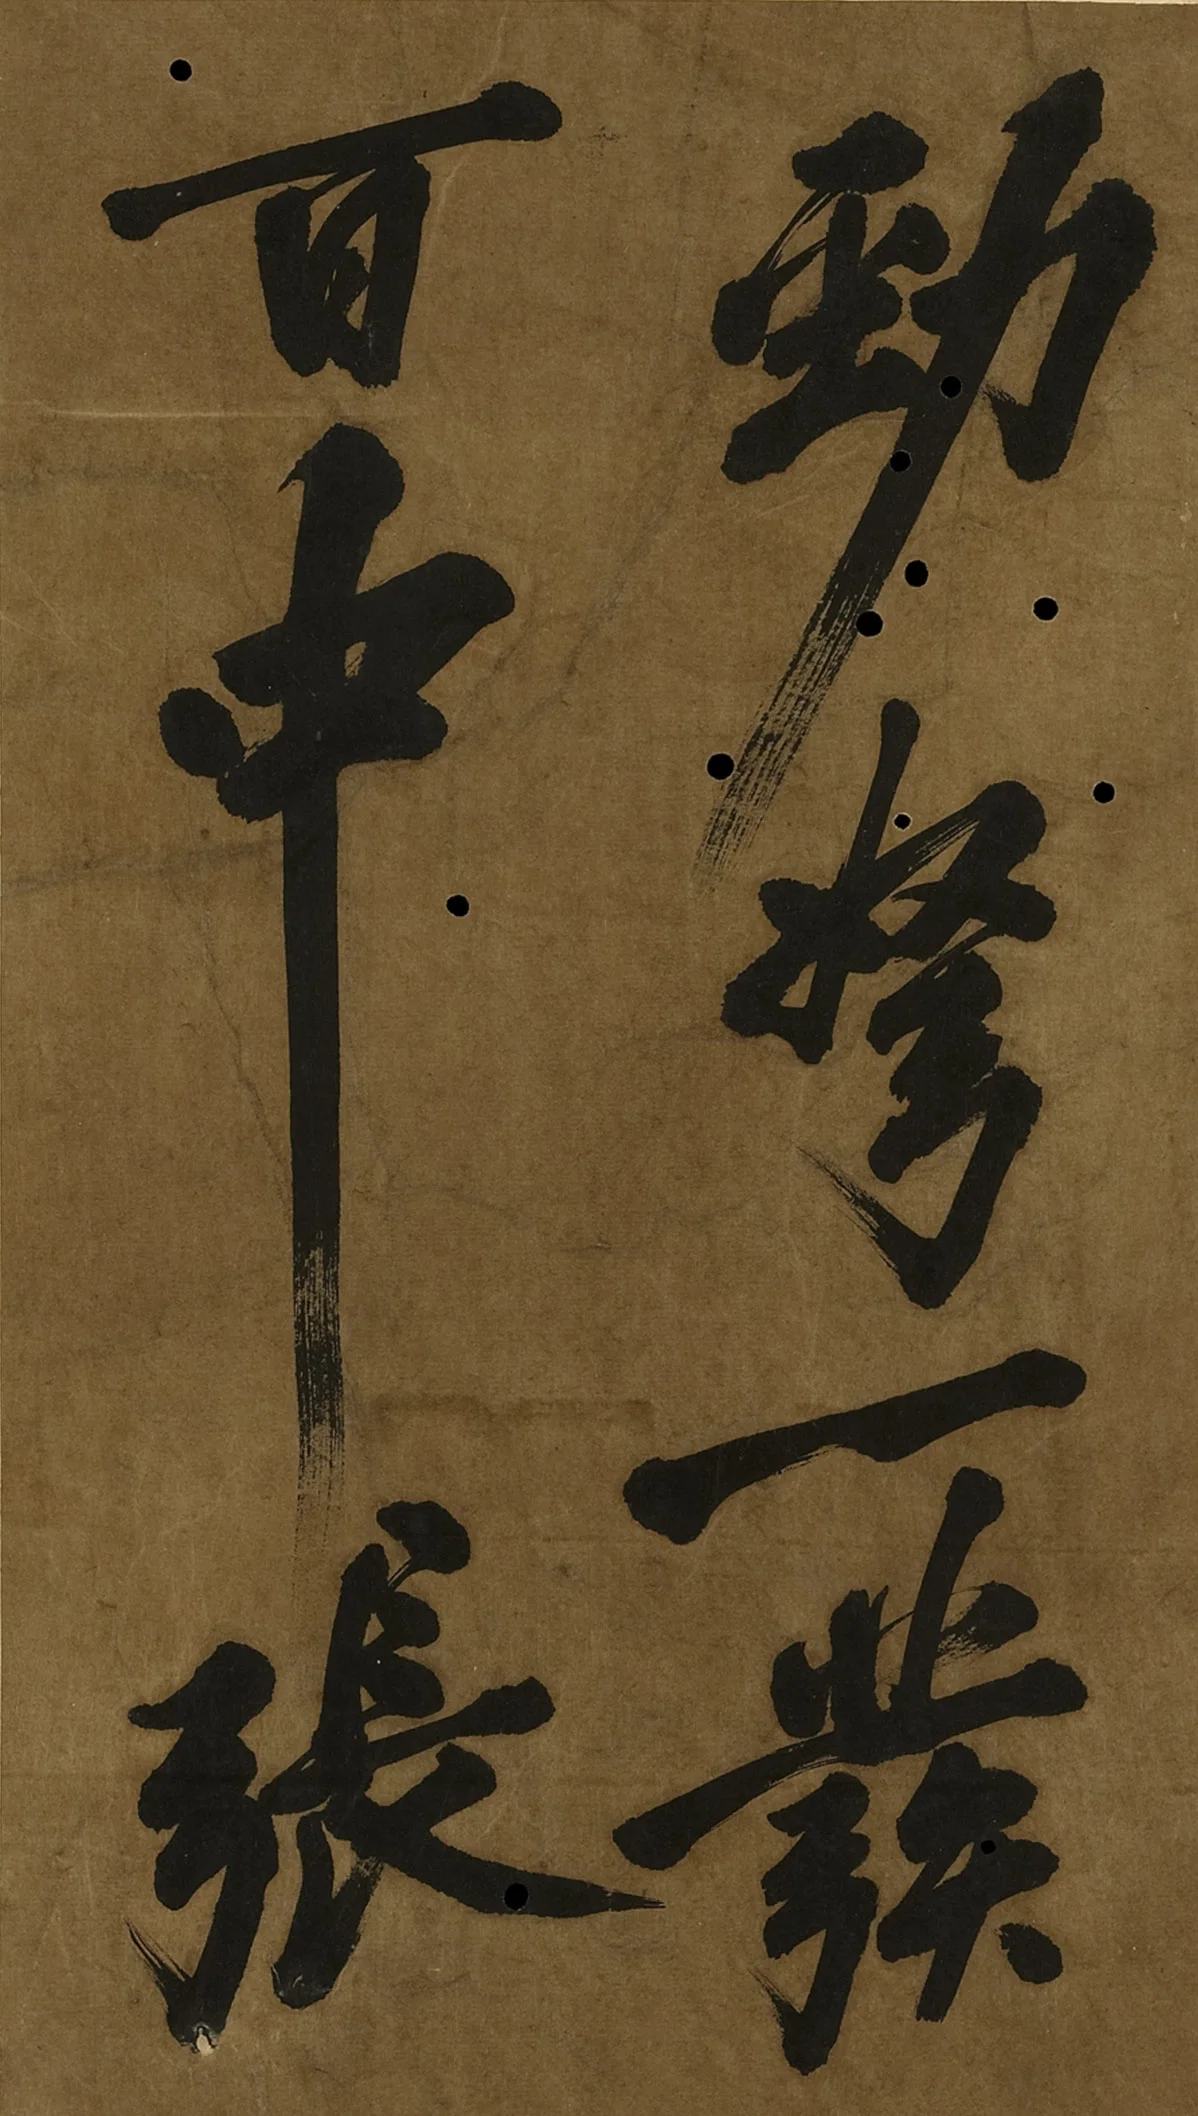 勁弩一發
百中張